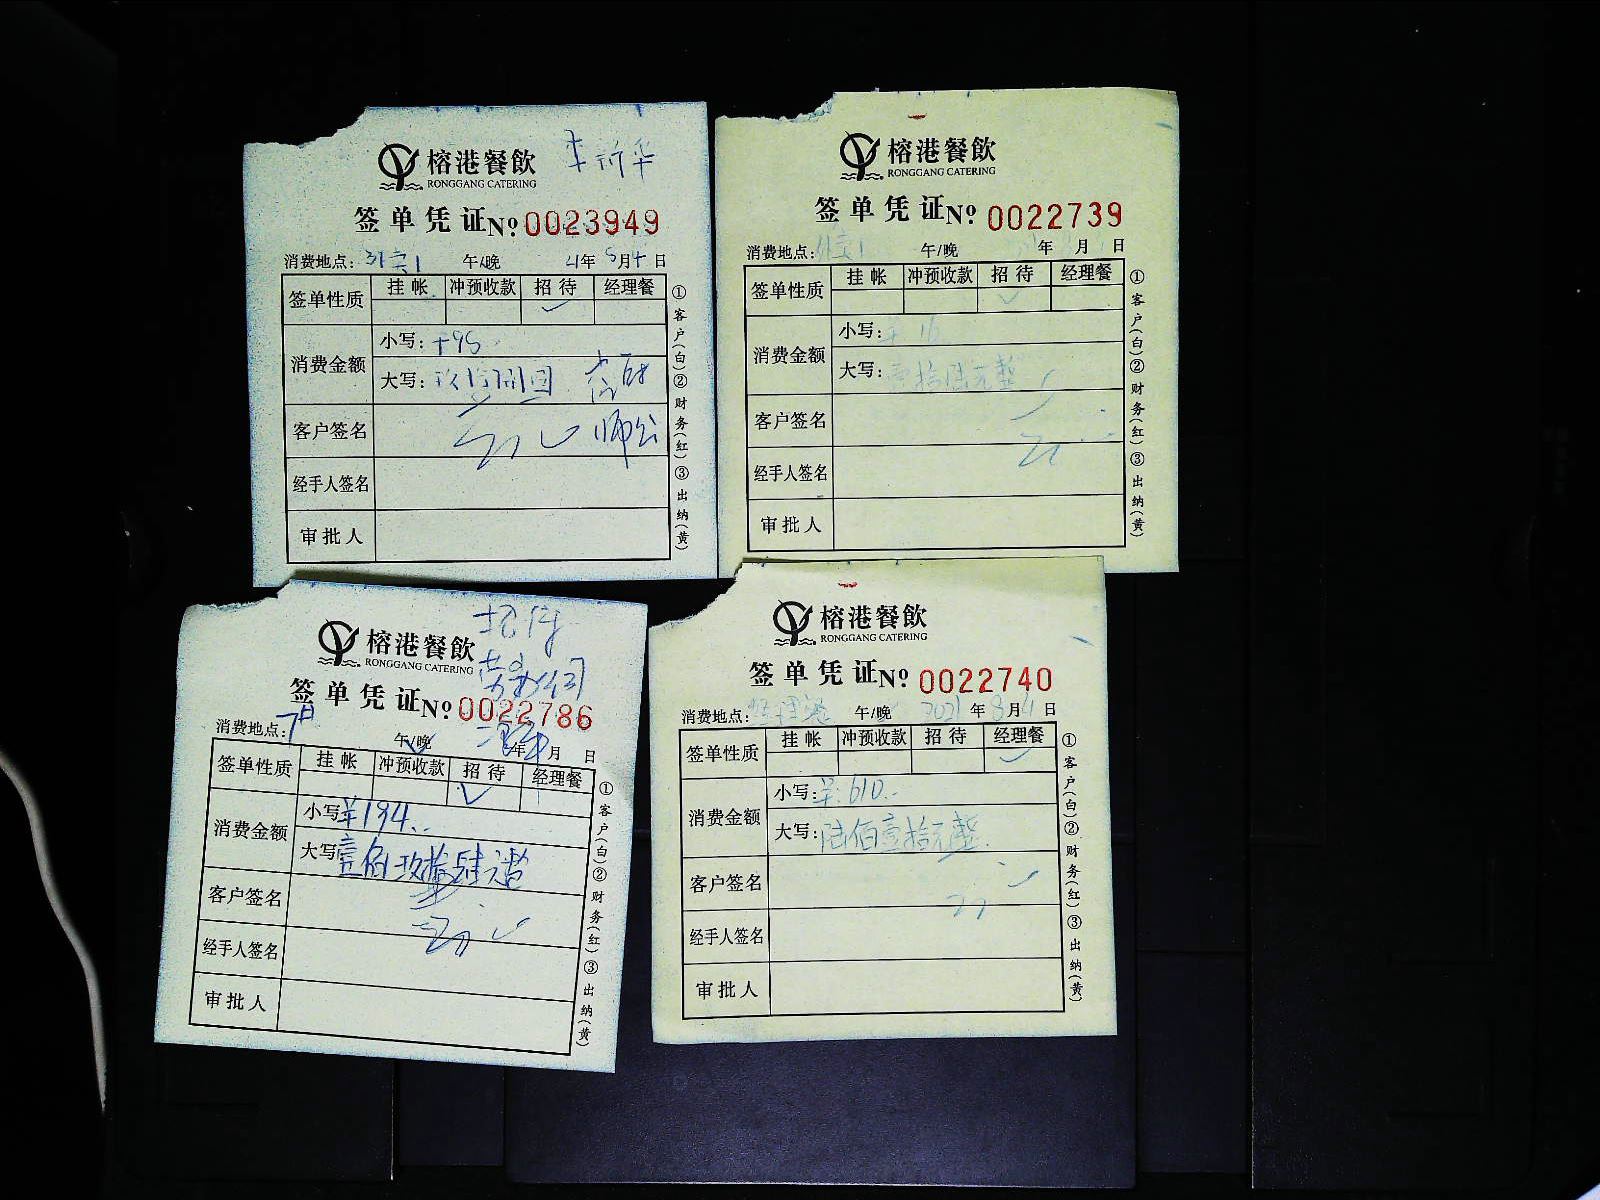 榕港餐飲
RONGGANG CATERING
签单凭证 Nº 0023949
消费地点: 午/晚 21年5月4日
签单性质 挂帐 冲预收款 招待 经理餐
消费金额
小写: 95
大写:
客户签名
经手人签名
审批人
①客户(白)②财务(红)③出纳(黄)
榕港餐飲
RONGGANG CATERING
签单凭证 Nº 0022739
消费地点: 午/晚 年 月 日
签单性质 挂帐 冲预收款 招待 经理餐
消费金额
小写: ¥16
大写: 壹拾陆元整
客户签名
经手人签名
审批人
①客户(白)②财务(红)③出纳(黄)
榕港餐飲
招待
RONGGANG CATERING
签单凭证 Nº 0022786
消费地点: 午/晚 年 月 日
签单性质 挂帐 冲预收款 招待 经理餐
消费金额
小写 ¥194..
大写 壹佰玖拾肆元整
客户签名
经手人签名
审批人
①客户(白)②财务(红)③出纳(黄)
榕港餐飲
RONGGANG CATERING
签单凭证 Nº 0022740
消费地点: 午/晚 2021年 月 日
签单性质 挂帐 冲预收款 招待 经理餐
消费金额
小写: ¥:610.-
大写: 陆佰壹拾元整
客户签名
经手人签名
审批人
①客户(白)②财务(红)③出纳(黄)